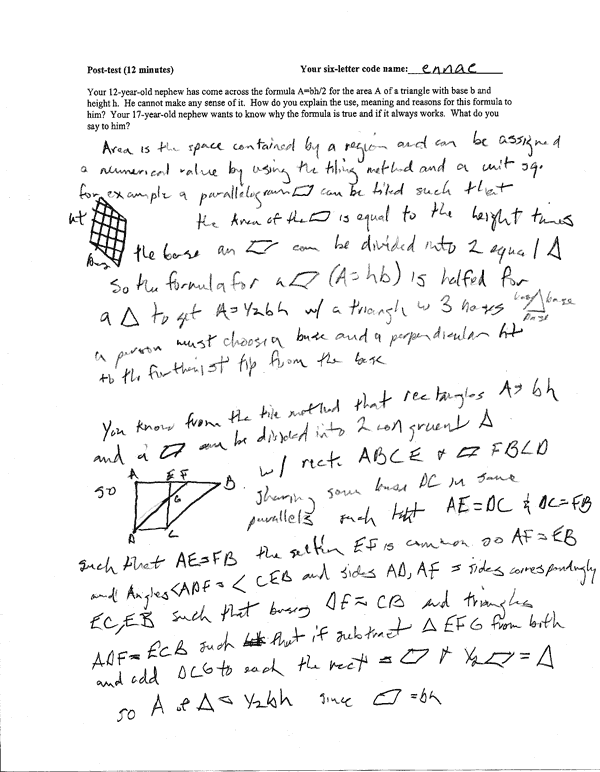 Post-test (12 minutes) Your six-letter code name: ennac
Your 12-year-old nephew has come across the formula A=bh/2 for the area A of a triangle with base b and
height h. He cannot make any sense of it. How do you explain the use, meaning and reasons for this formula to
him? Your 17-year-old nephew wants to know why the formula is true and if it always works. What do you
say to him?
Area is the space contained by a region and can be assigned
a numerical value by using the tiling method and a unit sq.
for example a parallelogram ▱ can be tiled such that
ht
the Area of the ▱ is equal to the height times
Base
the base an ▱ can be divided into 2 equal Δ
So the formula for a ▱ (A=hb) is halfed for
a Δ to get A=1/2bh w/ a triangle w 3 bases
base base
base
a person must choose a base and a perpendicular ht
to the tip from the base
You know from the tile method that rectangles A=bh
and a ▱ can be divided into 2 congruent Δ
so
A E F B
G
D C
w/ rect. ABCE + ▱ FBCD
sharing same base DC in same
parallels such that AE=DC & DC=FB
such that AE=FB the section EF is common so AF=EB
and Angles <ADF = < CEB and sides AD, AF = sides correspondingly
EC, EB such that DF = CB and triangles
ADF = ECB such that if subtract Δ EFG from both
and add DCG to each the rect = ▱ + 1/2▱ = Δ
so A of Δ = 1/2bh since ▱ = bh